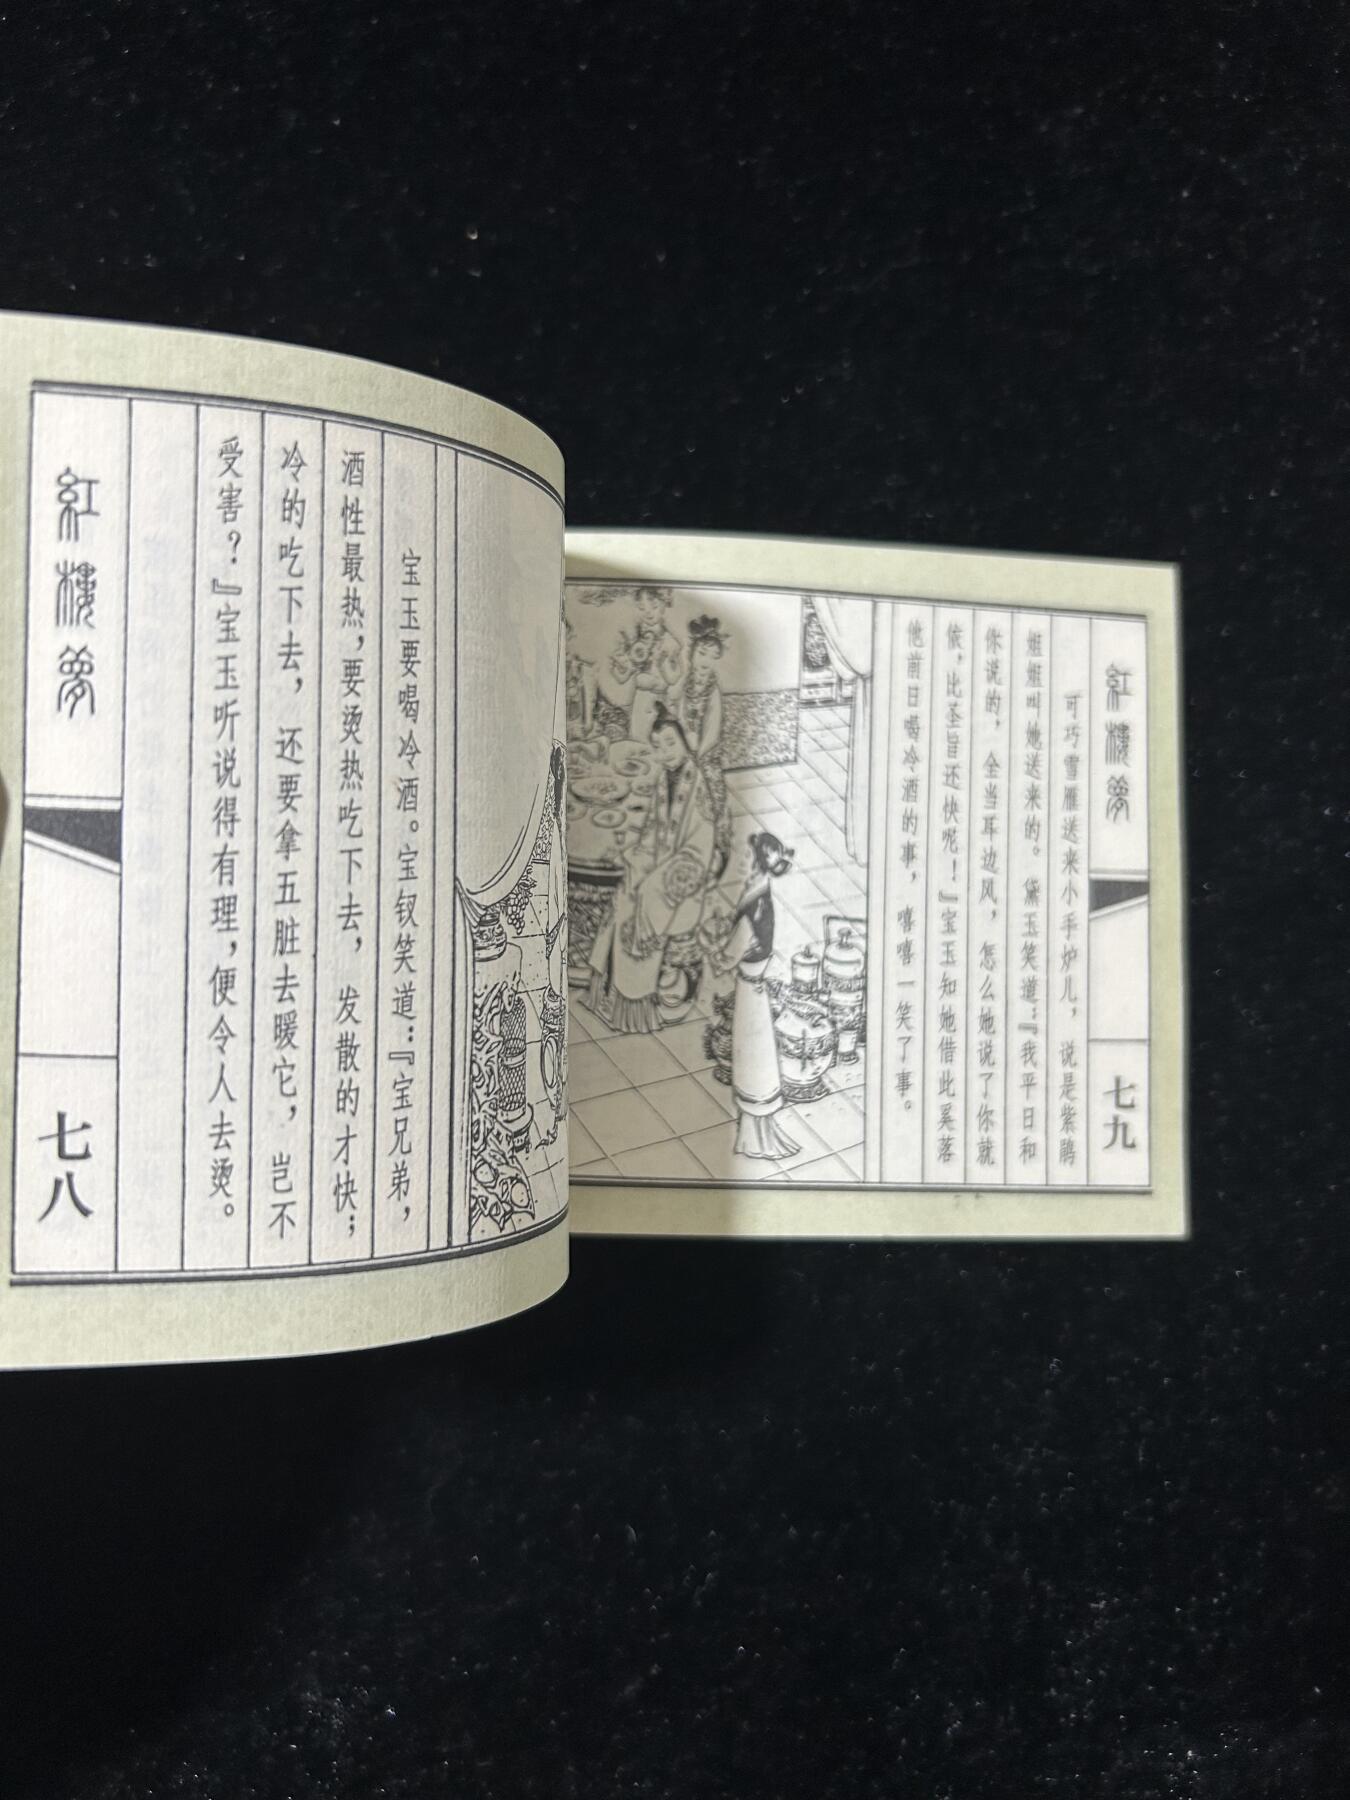 宝玉要喝冷酒。宝钗笑道：『宝兄弟，
酒性最热，要烫热吃下去，发散的才快；
冷的吃下去，还要拿五脏去暖它，岂不
受害？』宝玉听说得有理，便令人去烫。
紅樓夢
七八
紅樓夢
七九
可巧雪雁送来小手炉儿，说是紫鹃
姐姐叫她送来的。黛玉笑道：『我平日和
你说的，全当耳边风，怎么她说了你就
依，比圣旨还快呢！』宝玉知她借此奚落
他前日喝冷酒的事，嘻嘻一笑了事。